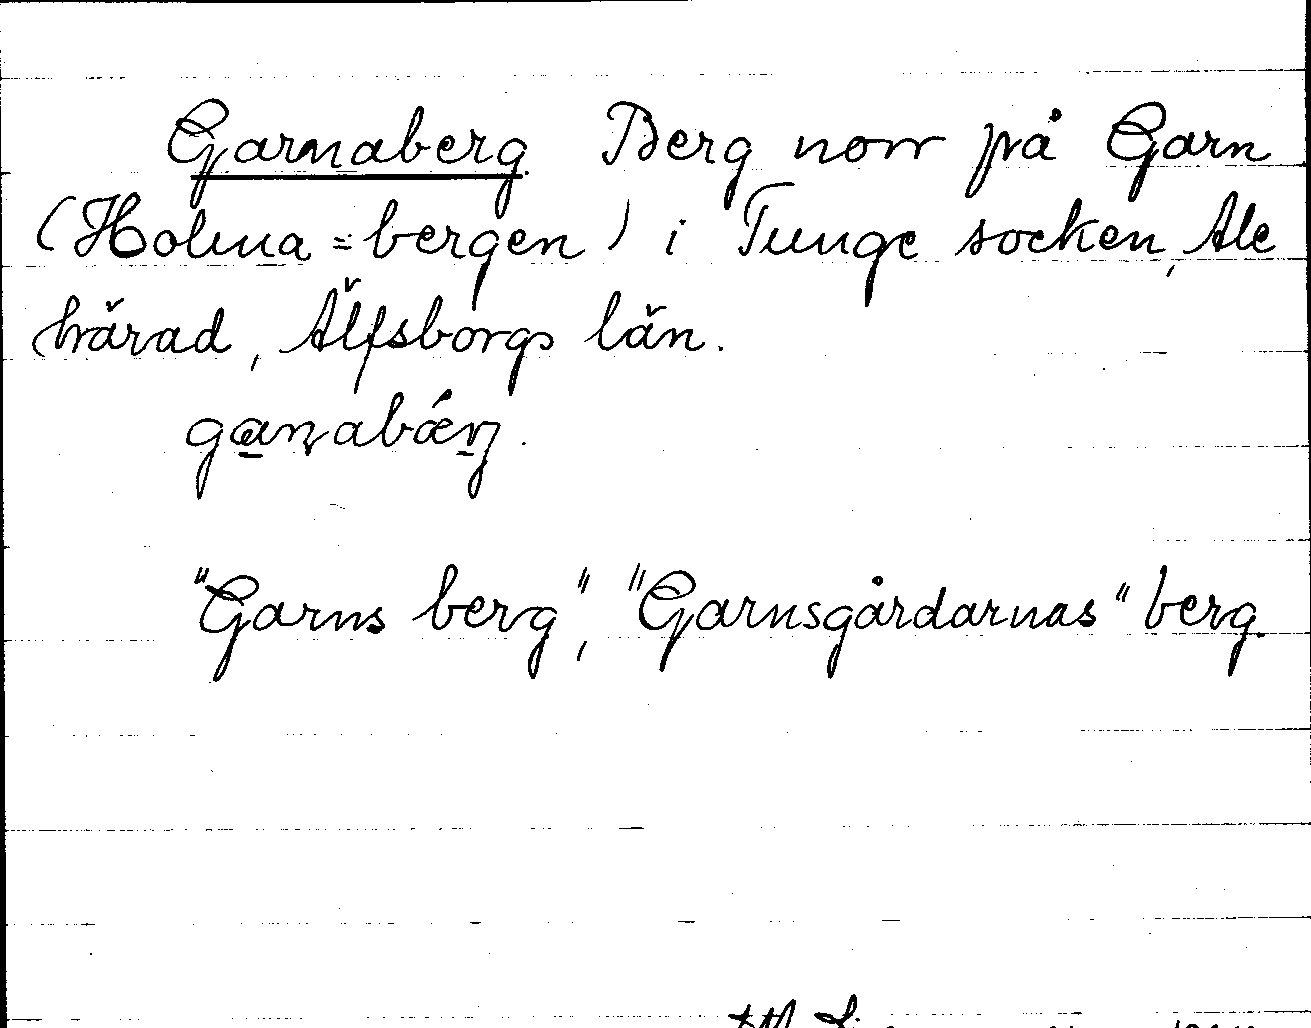 Garnaberg Berg norr på Garn
(Holma-bergen) i Tunge socken, Ale
härad, Älfsborgs län.
gaɳabǽrg.
"Garns berg", "Garnsgårdarnas" berg.